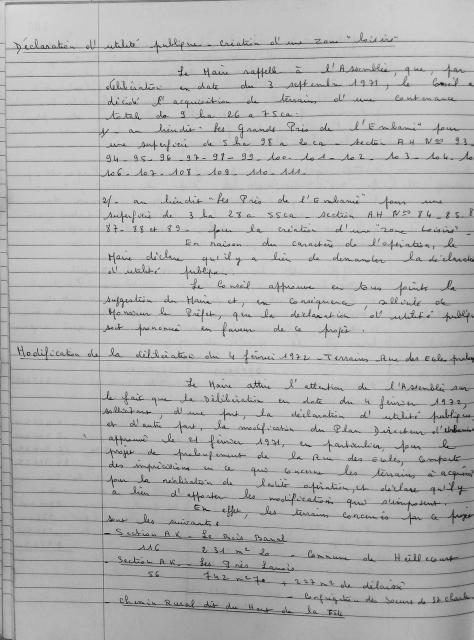 Déclaration d'utilité publique - Création d'une zone "loisirs"
Le Maire rappelle à l'Assemblée, que, par
délibération en date du 3 septembre 1971, le Conseil a
décidé l'acquisition de terrains d'une contenance
totale de 9 ha 26 a 75 ca :
1/- au lieudit "Les Grands Prés de l'Embanie" pour
une superficie de 5 ha 98 a 20 ca - section AH Nos 93 -
94 - 95 - 96 - 97 - 98 - 99 - 100 - 101 - 102 - 103 - 104 - 10
106 - 107 - 108 - 109 - 110 - 111 -
2/- au lieudit "Les Prés de l'Embanie" pour une
superficie de 3 ha 28 a 55 ca - section AH Nos 84 - 85 - 8
87 - 88 et 89 - pour la création d'une "zone loisirs" -
En raison du caractère de l'opération, le
Maire déclare qu'il y a lieu de demander la déclaration
d'utilité publique.
Le Conseil approuve en tous points la
suggestion du Maire et, en conséquence, sollicite de
Monsieur le Préfet, que la déclaration d'utilité publique
soit prononcée en faveur de ce projet.
Modification de la délibération du 4 février 1972 - Terrains Rue des Eules
Le Maire attire l'attention de l'Assemblée sur
le fait que la Délibération en date du 4 février 1972,
sollicitant, d'une part, la déclaration d'utilité publique
et d'autre part, la modification du Plan Directeur d'Urbanisme
approuvé le 21 février 1971, en particulier, pour le
projet de prolongement de la Rue des Eules, comporte
des imprécisions en ce qui concerne les terrains à acquérir
pour la réalisation de ladite opération, et déclare qu'il y
a lieu d'apporter les modifications qui s'imposent.
En effet, les terrains concernés par ce projet
sont les suivants :
- Section AK - Le Bois Banal
116 231 m² 20 - Commune de Heillecourt
- Section AK - Les Prés
56 742 m² 70 + 227 m² de délaissé
- Congrégation des Soeurs de St Charles
- Chemin Rural dit du Haut de la